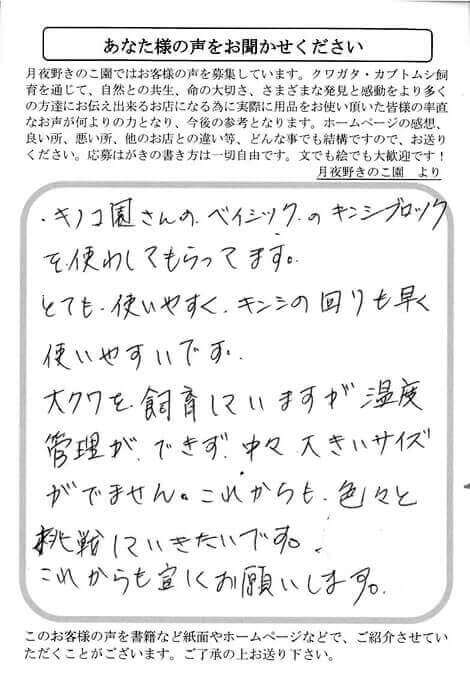 あなた様の声をお聞かせください
月夜野きのこ園ではお客様の声を募集しています。クワガタ・カブトムシ飼
育を通じて、自然との共生、命の大切さ、さまざまな発見と感動をより多く
の方達にお伝え出来るお店になる為に実際に用品をお使い頂いた皆様の率直
なお声が何よりの力となり、今後の参考となります。ホームページの感想、
良い所、悪い所、他のお店との違い等、どんな事でも結構ですので、お送り
ください。応募はがきの書き方は一切自由です。文でも絵でも大歓迎です！
月夜野きのこ園　より
・キノコ園さんの、ベイシック、のキンシブロック
を、使わしてもらってます。
とても、使いやすく、キンシの回りも早く
使いやすいです。
大クワを、飼育していますが温度
管理が、できず、中々、大きいサイズ
がでません。これからも、色々と
挑戦していきたいです。
これからも宜しくお願いします。
このお客様の声を書籍など紙面やホームページなどで、ご紹介させてい
ただくことがございます。ご了承の上お送り下さい。